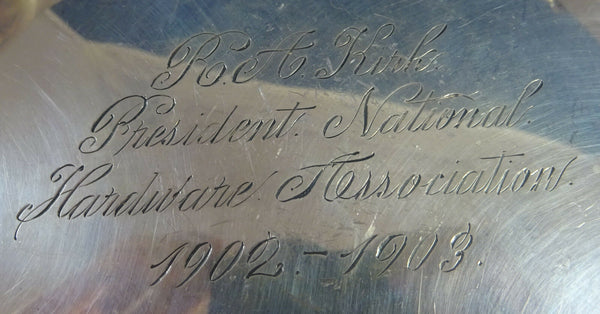 R. A. Kirk.
President. National.
Hardware. Association.
1902.-1903.